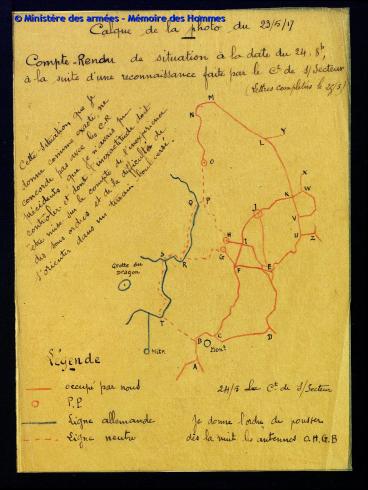 © Ministère des armées - Mémoire des Hommes
Calque de la photo du 23/5/17
Compte-Rendu de situation à la date du 24. 8h
à la suite d'une reconnaissance faite par le Ct de S/Secteur
(Lettres complétées le 25/5)
Cette situation que je
donne comme exacte ne
concorde pas avec les C.R
précédents que je n'avais pu
contrôler et dont l'inexactitude doit
être mise sur le compte de l'inexpérience
des sous ordres et de la difficulté de
s'orienter dans un terrain bouleversé.
M
N
L
O
K
X
W
P
Q
J
V
U
Z
H
I
G
S
R
F
E
Grotte du
Dragon
T
B
C
D
A
Légende
occupé par nous
P.P.
Ligne allemande
Ligne neutre
24/5 Le Ct de S/Secteur
Je donne l'ordre de pousser
dès la nuit les antennes O.H.G.B